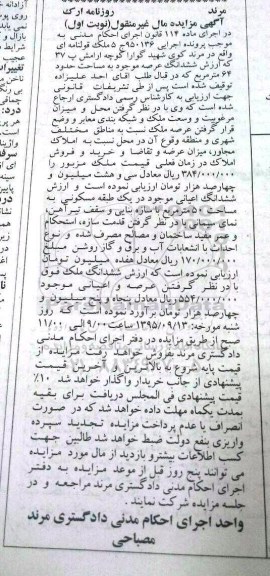 مرند روزنامه ارک
آگهی مزایده مال غیرمنقول(نوبت اول)
در اجرای ماده ۱۱۴ قانون اجرای احکام مدنی به
موجب پرونده اجرایی ۹۵۰۱۳۶ ج ۵ ملک قولنامه ای
واقع در مرند کوی شهید گوارا کوچه ارامش پ ۳۷
که ارزش ششدانگ عرصه موجود به مساحت حدود
۶۴ مترمربع که در قبال طلب آقای احد علیزاده
توقیف شده است پس از طی تشریفات قانونی
جهت ارزیابی به کارشناس رسمی دادگستری ارجاع
شده است که وی با در نظر گرفتن محل و میزان
عرصه وسعت ملک و شبکه بندی معابر و وضع
قرار گرفتن عرصه ملک نسبت به مناطق مختلف
شهری و منطقه وقوع آن در محل نسبت به املاک
مجاور میزان عرصه و تقاضا و خرید و فروش
املاک در زمان فعلی قیمت ملک مزبور را
۳۸۴/۰۰۰/۰۰۰ ریال معادل سی و هشت میلیون و
چهارصد هزار تومان ارزیابی نموده است و ارزش
ششدانگ اعیانی موجود در یک طبقه مسکونی به
مساحت مترمربع با سازه بنایی و سقف تیرآهن،
نمای سیمان با در نظر گرفتن قدمت سازه، استحکام
و درصد ساختمان و مصالح مصرف شده و نوع
احداث با انشعابات آب و برق و گاز روشن مبلغ
۱۷۰/۰۰۰/۰۰۰ ریال معادل هفده میلیون تومان
ارزیابی نموده است که ارزش ششدانگ ملک فوق
با در نظر گرفتن عرصه و اعیانی موجود
۵۵۴/۰۰۰/۰۰۰ ریال معادل پنجاه و پنج میلیون و
چهارصد هزار تومان برآورد نموده است که روز
شنبه مورخه: ۱۳۹۵/۰۹/۱۳ ساعت ۹/۰۰ الی ۱۱/۰۰
صبح از طریق مزایده در دفتر اجرای احکام مدنی
دادگستری مرند بفروش خواهد رفت مزایده از
قیمت پایه شروع به بالاترین و آخرین قیمت
پیشنهادی از جانب خریدار واگذار خواهد شد ۱۰٪
قیمت پیشنهادی فی المجلس دریافت برای بقیه
بمدت یکماه مهلت داده خواهد شد که در صورت
انصراف یا عدم پرداخت مزایده تجدید سپرده
واریزی بنفع دولت ضبط خواهد شد طالبین جهت
کسب اطلاعات بیشتر و بازدید از مال مورد مزایده
می توانند پنج روز قبل از موعد مزایده به دفتر
اجرای احکام مدنی دادگستری مرند مراجعه و در
جلسه مزایده شرکت نمایند.
واحد اجرای احکام مدنی دادگستری مرند
مصباحی